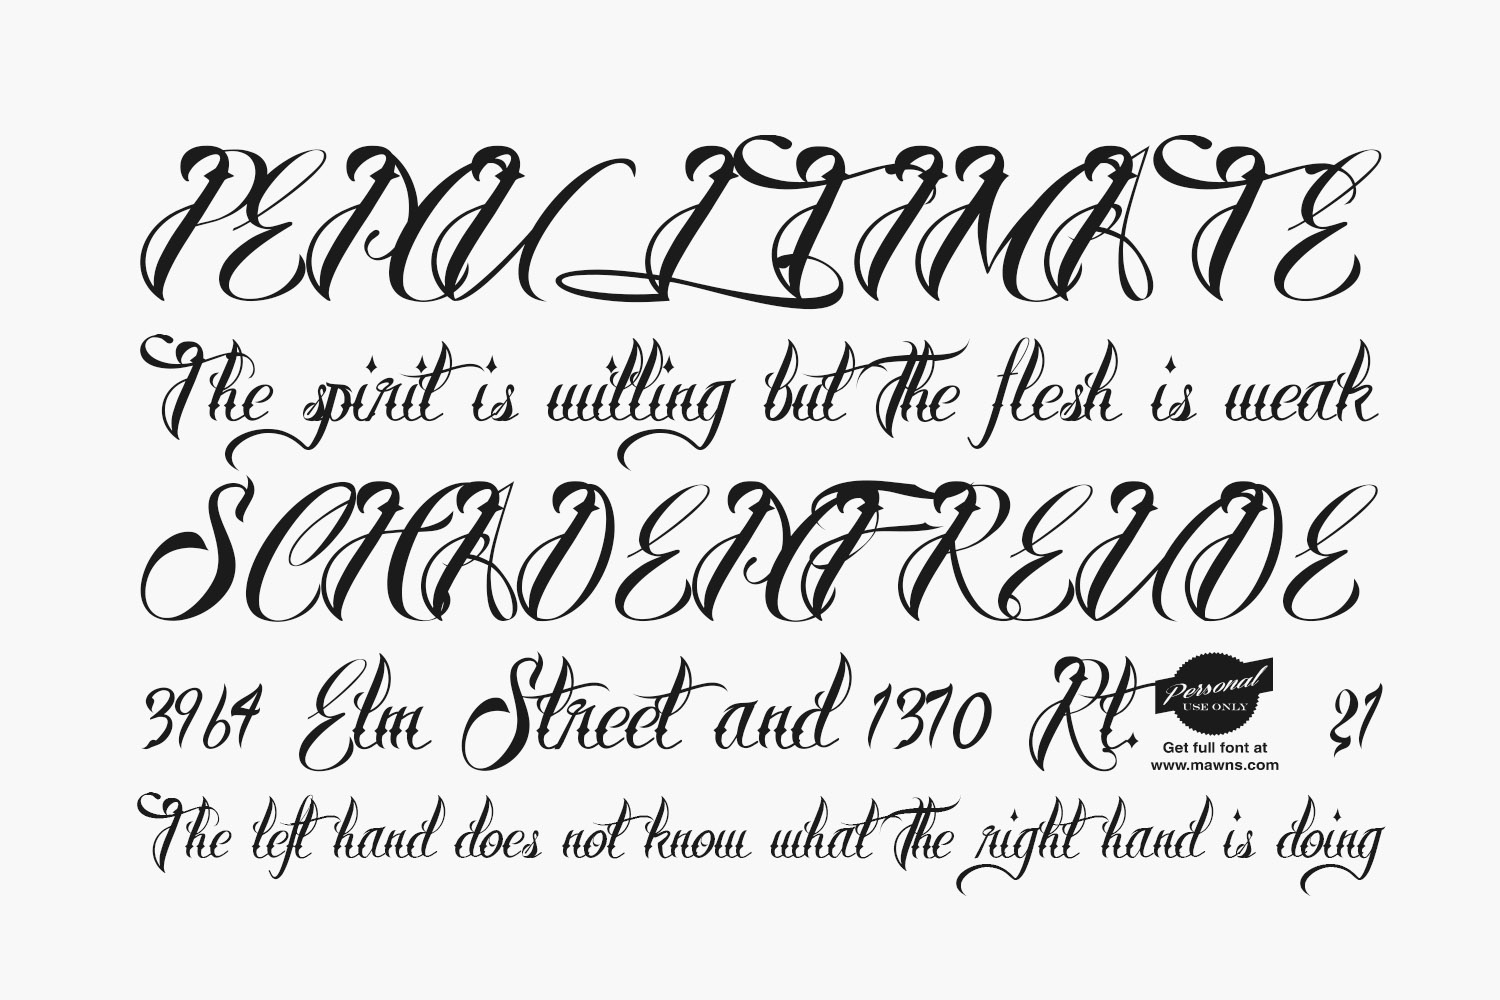 PENULTIMATE
The spirit is willing but the flesh is weak
SCHADENFREUDE
3964 Elm Street and 1370 Rt. 21
Personal
USE ONLY
Get full font at
www.mawns.com
The left hand does not know what the right hand is doing